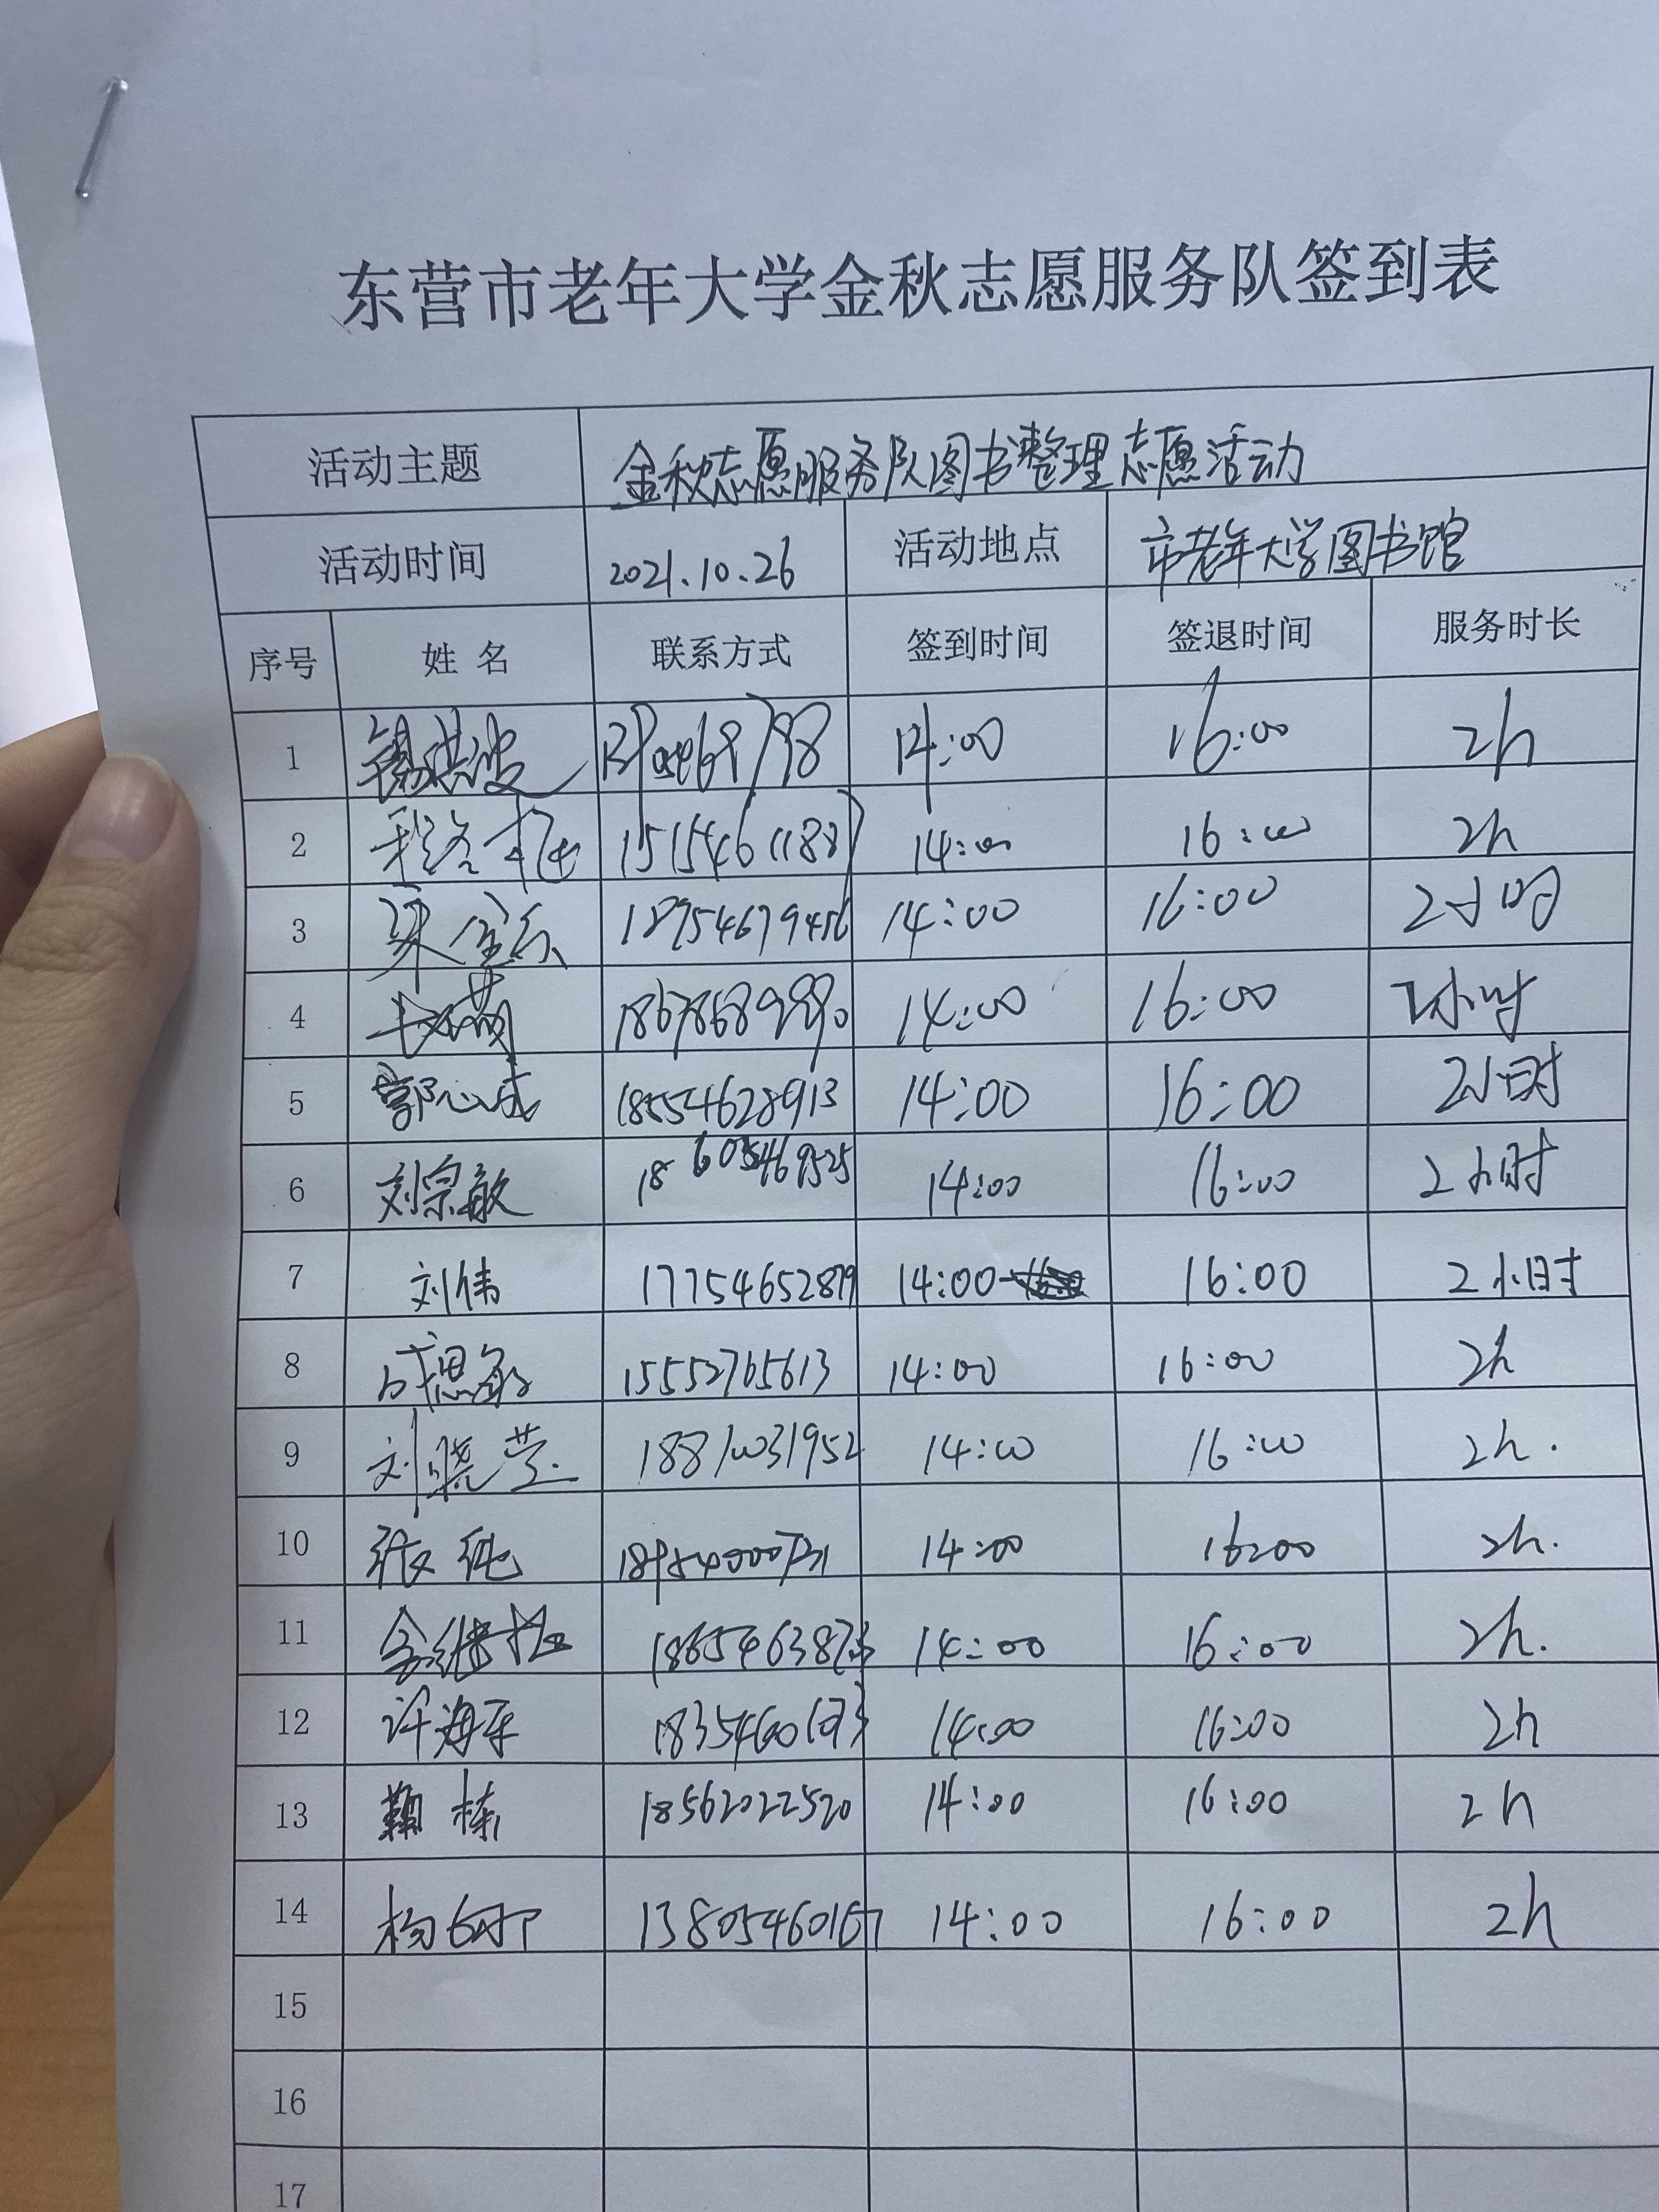 东营市老年大学金秋志愿服务队签到表
活动主题 金秋志愿服务队图书整理志愿活动
活动时间 2021.10.26 活动地点 市老年大学图书馆
序号 姓名 联系方式 签到时间 签退时间 服务时长
1 14:00 16:00 2h
2 15154611887 14:00 16:00 2h
3 18954679456 14:00 16:00 2小时
4 14:00 16:00 2小时
5 郭心成 18554628913 14:00 16:00 2小时
6 刘宗敏 18605469525 14:00 16:00 2小时
7 刘伟 17754652879 14:00 16:00 2小时
8 15552765613 14:00 16:00 2h
9 刘晓莹 18810031952 14:00 16:00 2h.
10 张纯 14:00 16:00 2h.
11 14:00 16:00 2h.
12 许海平 14:00 16:00 2h
13 鞠栋 18562022520 14:00 16:00 2h
14 杨娜 13805460167 14:00 16:00 2h
15
16
17